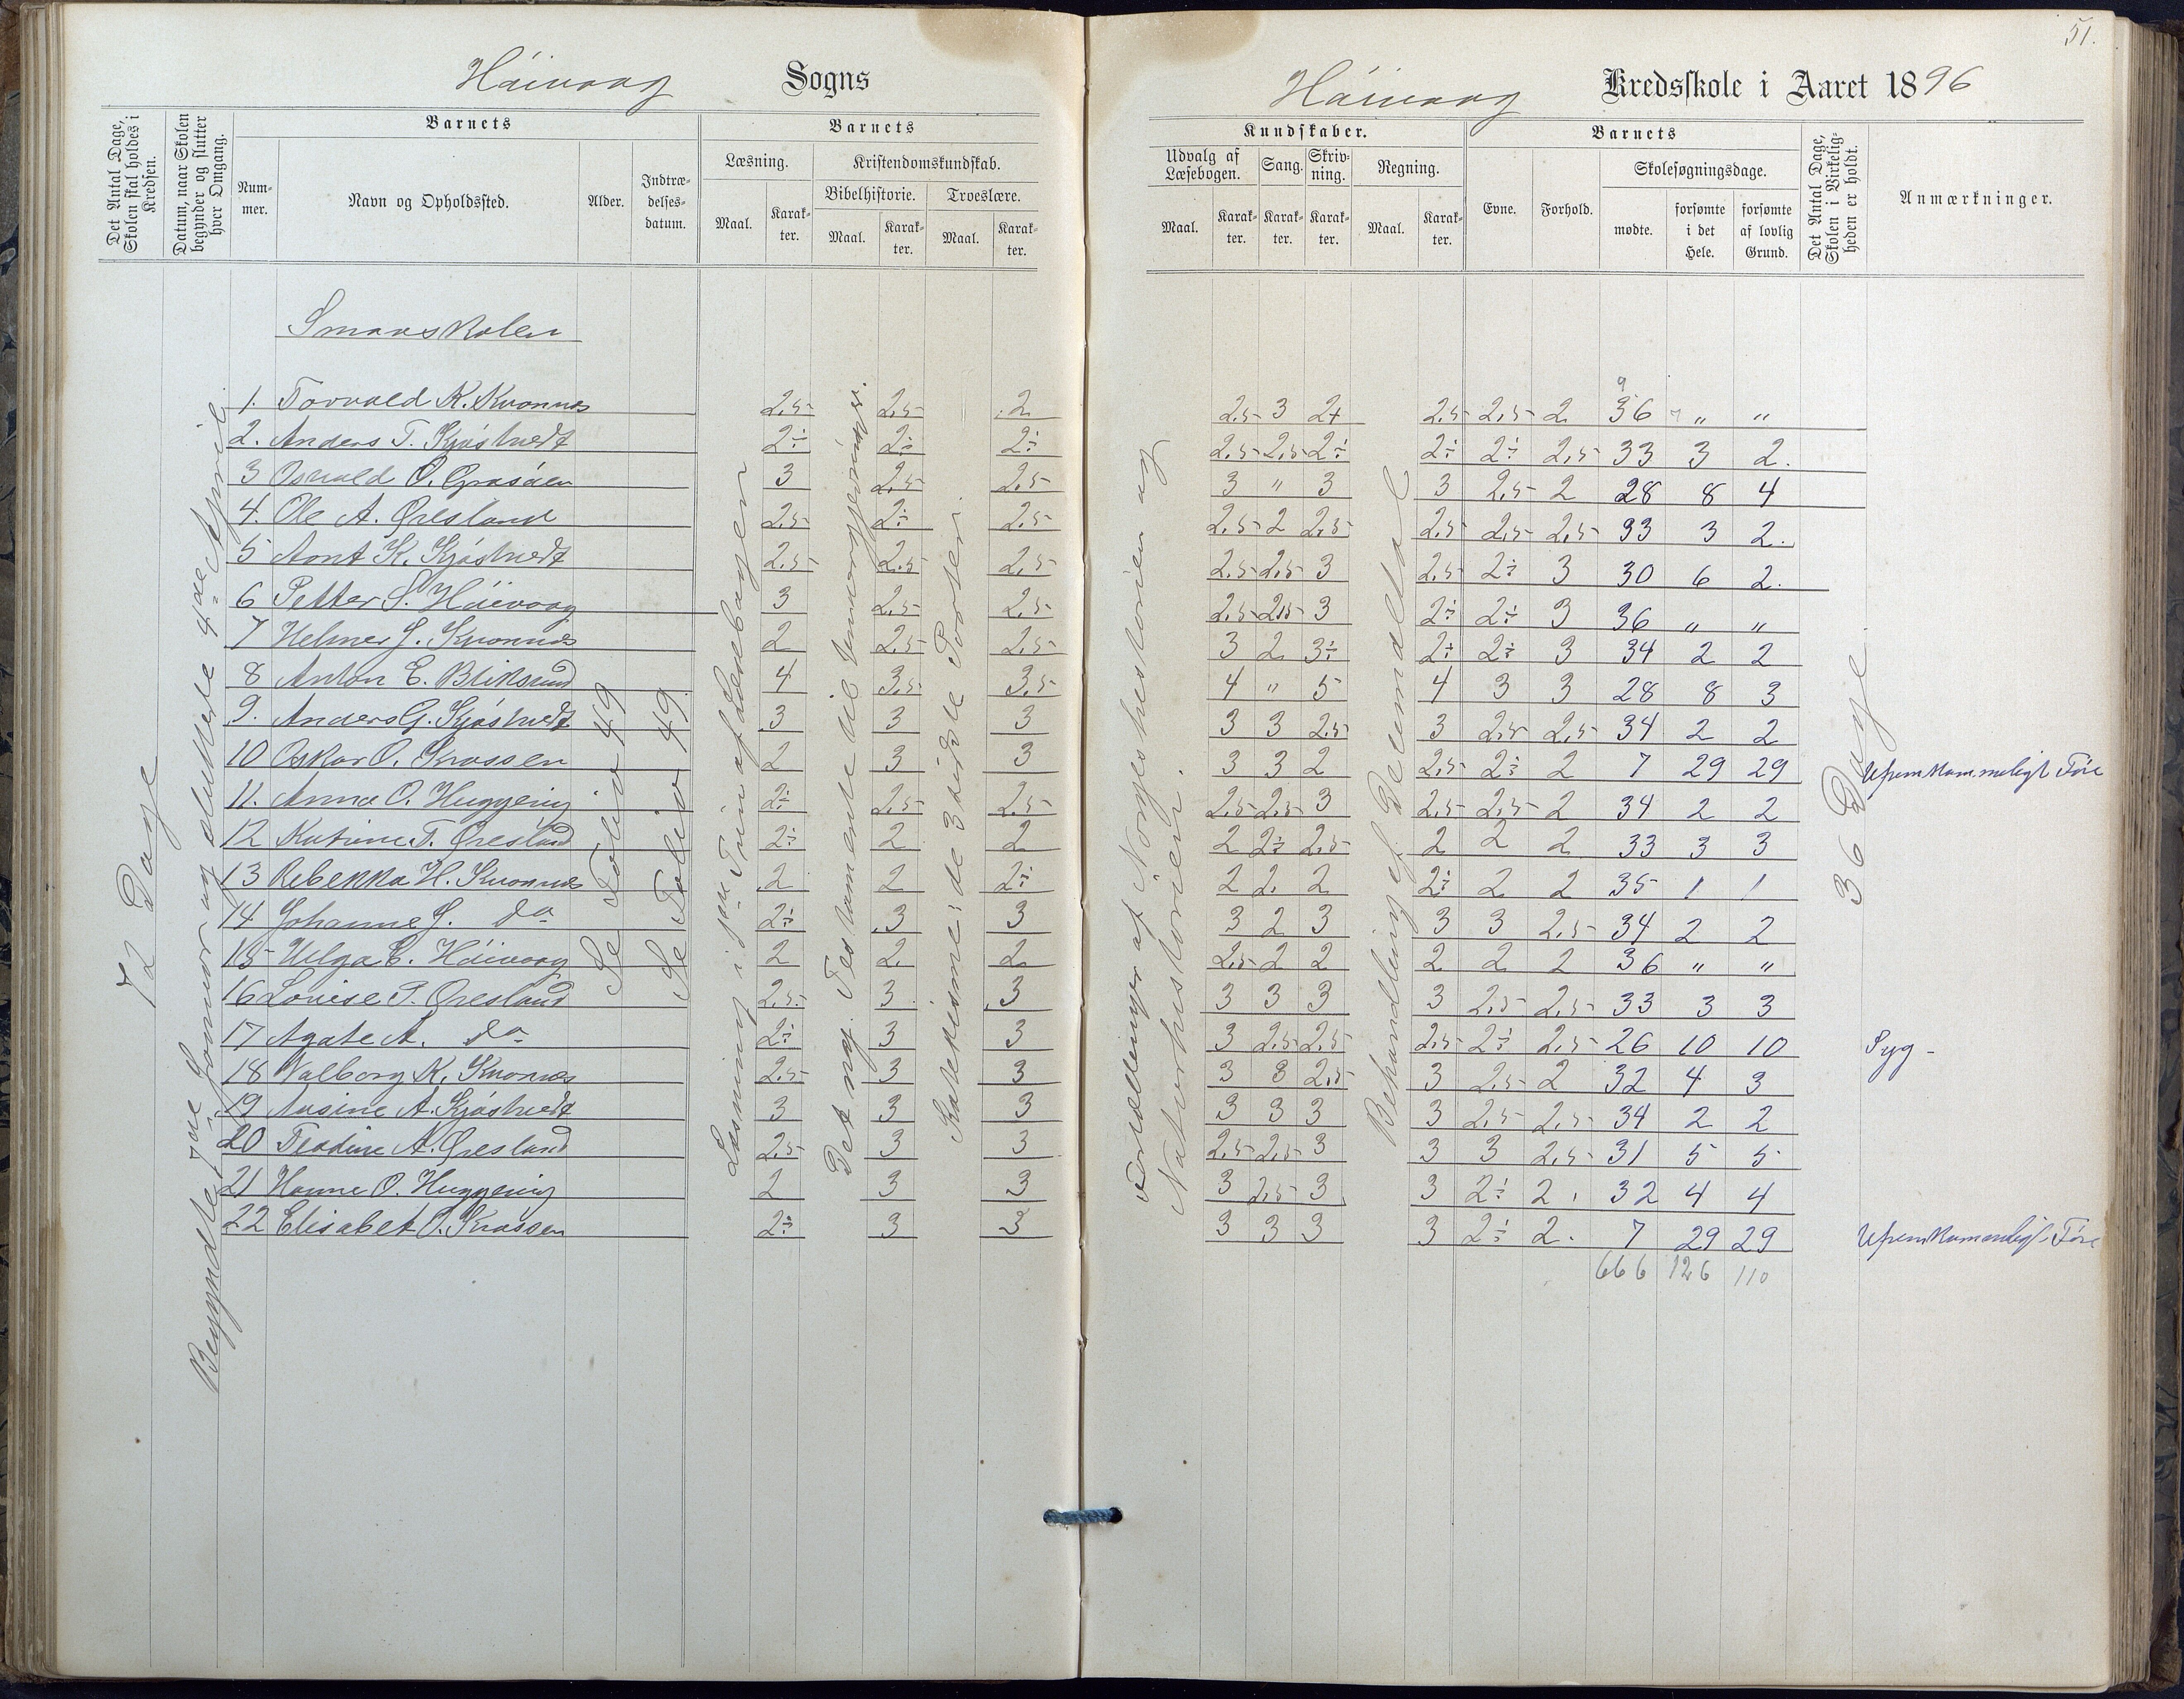 51.
Höivaag Sogns
Höivaag Kredsskole i Aaret 1896
Det Antal Dage, Skolen skal holdes i Kredsen.
Datum, naar Skolen begynder og slutter hver Omgang.
Barnets
Barnets
Kundskaber.
Barnets
Det Antal Dage, Skolen i Virkeligheden er holdt.
Anmærkninger.
Nummer.
Navn og Opholdssted.
Alder.
Indtrædelsesdatum.
Læsning.
Kristendomskundskab.
Bibelhistorie.
Troeslære.
Maal.
Karakter.
Maal.
Karakter.
Maal.
Karakter.
Udvalg af Læsebogen.
Sang.
Skrivning.
Regning.
Maal.
Karakter.
Karakter.
Karakter.
Maal.
Karakter.
Evne.
Forhold.
Skolesøgningsdage.
mødte.
forsømte i det Hele.
forsømte af lovlig Grund.
72 Dage
Begyndte 7de Januar og sluttede 4de April
Se Folio 49
Se Folio 49
Læsning i 1ste Trin af Læsebogen
Det nye Testamente til
Katekisme: de 3 første Parter.
Fortællinger af Norgeshistorien og
Naturhistorien.
Behandling af
36 Dage
Smaaskolen
1. Torvald K. Kvannes 2,5 2,5 2 2,5 3 2+ 2,5 2,5 2 36 " "
2. Anders T. Kjöstvedt 2÷ 2÷ 2÷ 2,5 2,5 2÷ 2÷ 2÷ 2,5 33 3 2.
3 Osvald O. Grasåen 3 2,5 2,5 3 " 3 3 2,5 2 28 8 4
4. Ole A. Øresland 2,5 2÷ 2,5 2,5 2 2,5 2,5 2,5 2,5 33 3 2.
5 Aont K. Kjöstvedt 2,5 2,5 2,5 2,5 2,5 3 2,5 2÷ 3 30 6 2.
6 Petter S. Höivaag 3 2,5 2,5 2,5 2,5 3 2÷ 2÷ 3 36 " "
7 Helmer J. Kvannes 2 2,5 2,5 3 2 3÷ 2÷ 2÷ 3 34 2 2
8 Anton E. Bliksund 4 3,5 3,5 4 " 5 4 3 3 28 8 3
9. Anders G. Kjöstvedt 3 3 3 3 3 2,5 3 2,5 2,5 34 2 2
10 Oskar O. Kraasen 2 3 3 3 3 2 2,5 2÷ 2 7 29 29 Ufremkommeligt Føre
11. Anna O. Huggenig 2÷ 2,5 2,5 2,5 2,5 3 2,5 2,5 2 34 2 2
12 Katrine T. Øresland 2÷ 2 2 2 2÷ 2,5 2 2 2 33 3 3
13 Rebekka H. Kvannes 2 2 2÷ 2 2. 2 2÷ 2 2 35 1 1
14 Johanne J. do 2÷ 3 3 3 2 3 3 3 2,5 34 2 2
15 Helga E. Höivaag 2 2. 2 2,5 2 2 2 2 2 36 " "
16 Louise T. Øresland 2,5 3 3 3 3 3 3 2,5 2,5 33 3 3
17 Agate A. do 2÷ 3 3 3 2,5 2,5 2,5 2÷ 2,5 26 10 10 Syg
18 Valborg K. Kvannes 2,5 3 3 3 3 2,5 3 2,5 2 32 4 3
19 Ausine A. Kjöstvedt 3 3 3 3 3 3 3 2,5 2,5 34 2 2
20 Teodine A. Øresland 2,5 3 3 2,5 2,5 3 3 3 2,5 31 5 5
21 Hanne O. Huggenig 2 3 3 3 2,5 3 3 2÷ 2 32 4 4
22 Elisabet O. Kraasen 2÷ 3 3 3 3 3 3 2÷ 2. 7 29 29 Ufremkommeligt Føre
666 126 110